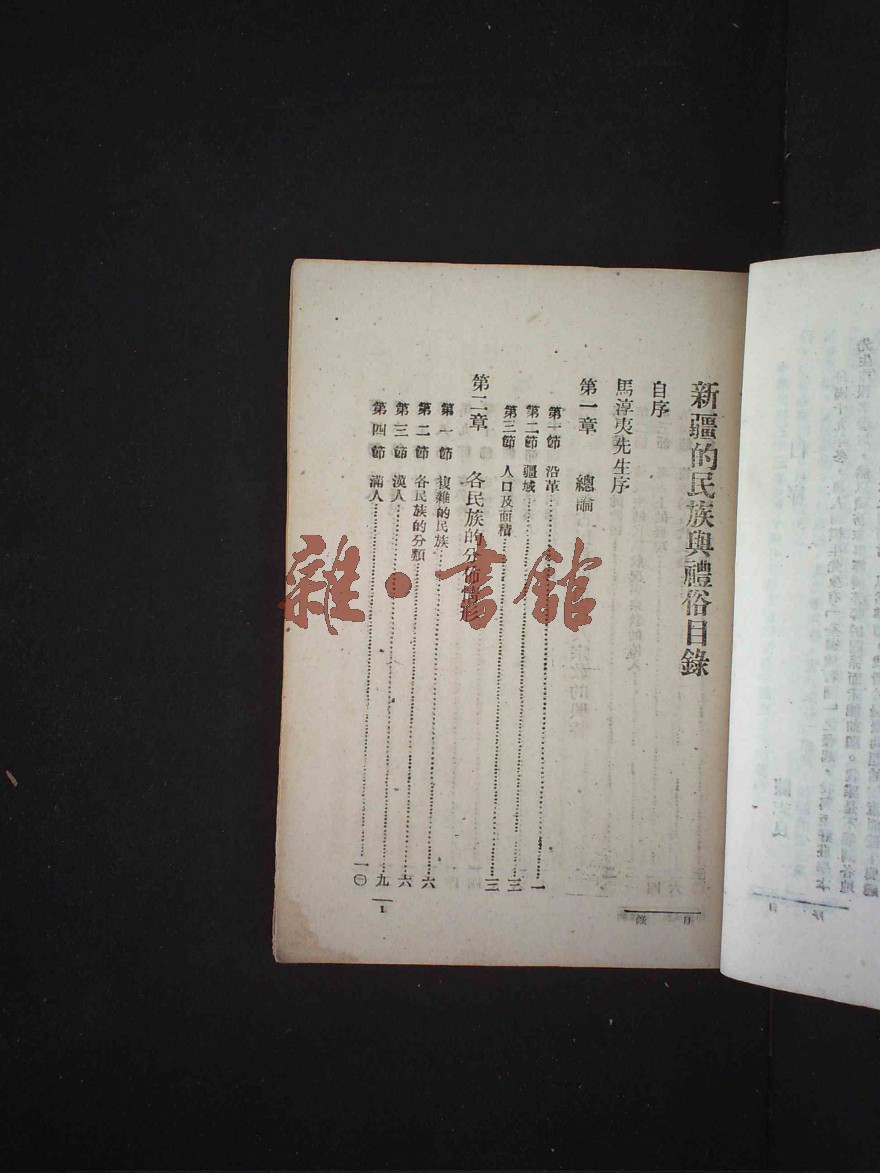 新疆的民族與禮俗目錄
自序
馬淳夷先生序
第一章 總論
第一節 沿革……一
第二節 疆域……三
第三節 人口及面積……三
第二章 各民族的分佈情形
第一節 複雜的民族……六
第二節 各民族的分類……六
第三節 漢人……九
第四節 滿人……一〇
目錄
1
雜·書館